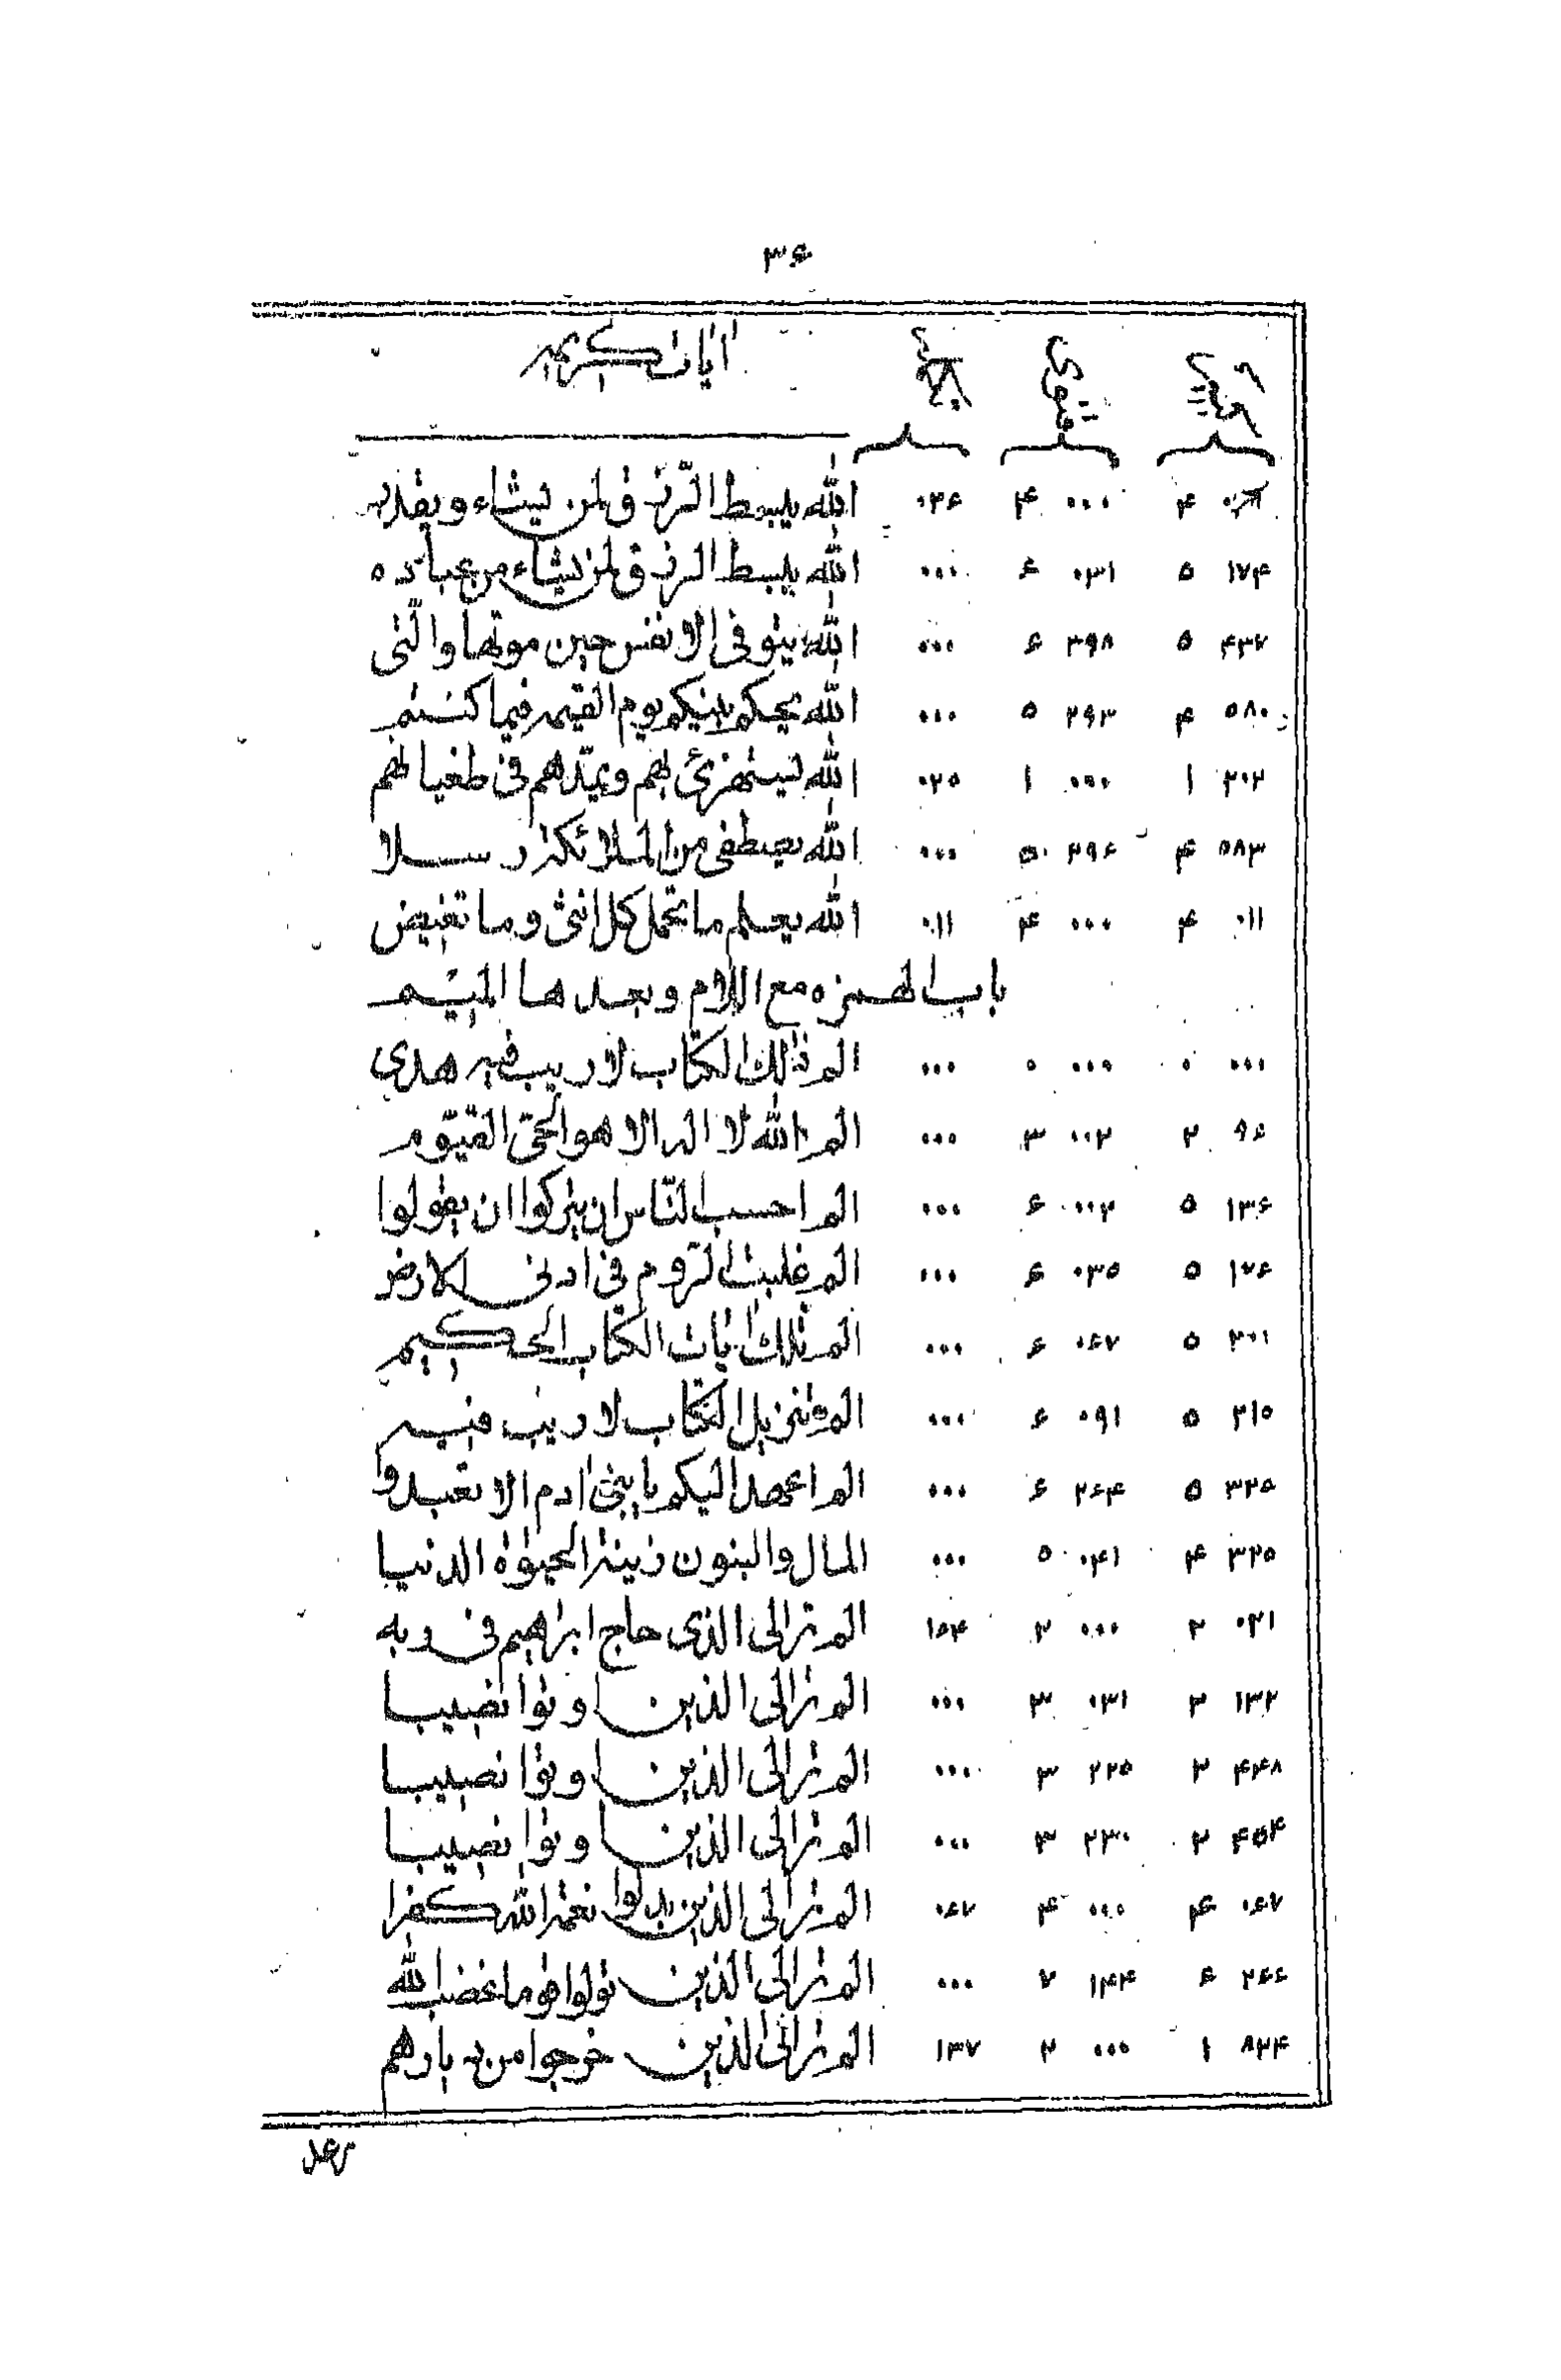 ۳۶
اٰیات کریمه
۴ ۰۰۰ ۴ ۰۳۶ الله یبسط الرّزق لمن یشاء ویقدر
۱۷۴ ۵ ۰۳۱ ۶ ۰۰۰ الله یبسط الرزق لمن یشاء من عباده
۴۳۷ ۵ ۳۹۸ ۶ ۰۰۰ الله یتوفی الانفس حین موتها والّتی
۵۸۰ ۴ ۲۹۳ ۵ ۰۰۰ الله یحکم بینکم یوم القیمه فیما کنتم
۲۰۲ ۱ ۰۰۰ ۱ ۰۲۵ الله یستهزئ بهم ویمدّهم فی طغیانهم
۵۸۳ ۴ ۲۹۶ ۵ ۰۰۰ الله یصطفی من الملائکه رسلا
۰۱۱ ۴ ۰۰۰ ۴ ۰۱۱ الله یعلم ما تحمل کل انثی وما تغیض
باب الهمزه مع اللام وبعدها المیم
۰۰۰ ۰ ۰۰۰ ۰ ۰۰۰ الم ذٰلك الکتاب لا ریب فیه هدی
۹۶ ۲ ۰۰۲ ۳ ۰۰۰ الم الله لا اله الا هو الحیّ القیّوم
۱۳۶ ۵ ۰۰۲ ۶ ۰۰۰ الم احسب النّاس ان یترکوا ان یقولوا
۱۷۶ ۵ ۰۳۵ ۶ ۰۰۰ الم غلبت الرّوم فی ادنی الارض
۲۰۱ ۵ ۰۶۷ ۶ ۰۰۰ الم تلك اٰیات الکتاب الحکیم
۲۱۵ ۵ ۰۹۱ ۶ ۰۰۰ الم تنزیل الکتاب لا ریب فیه
۳۲۵ ۵ ۲۶۴ ۶ ۰۰۰ الم اعهد الیکم یا بنی اٰدم الا تعبدوا
۳۲۵ ۴ ۰۴۱ ۵ ۰۰۰ المال والبنون زینة الحیوٰة الدنیا
۰۲۱ ۲ ۰۰۰ ۲ ۱۵۴ الم تر الی الذی حاج ابراهیم فی ربه
۱۳۲ ۲ ۰۳۱ ۳ ۰۰۰ الم تر الی الذین اوتوا نصیبا
۴۴۸ ۲ ۲۲۵ ۳ ۰۰۰ الم تر الی الذین اوتوا نصیبا
۴۵۴ ۲ ۲۳۰ ۳ ۰۰۰ الم تر الی الذین اوتوا نصیبا
۰۶۷ ۴ ۰۰۰ ۴ ۰۶۷ الم تر الی الذین بدلوا نعمة الله کفرا
۲۶۶ ۶ ۱۴۴ ۷ ۰۰۰ الم تر الی الذین تولوا قوما غضب الله
۸۲۴ ۱ ۰۰۰ ۲ ۱۳۷ الم تر الی الذین خرجوا من دیارهم